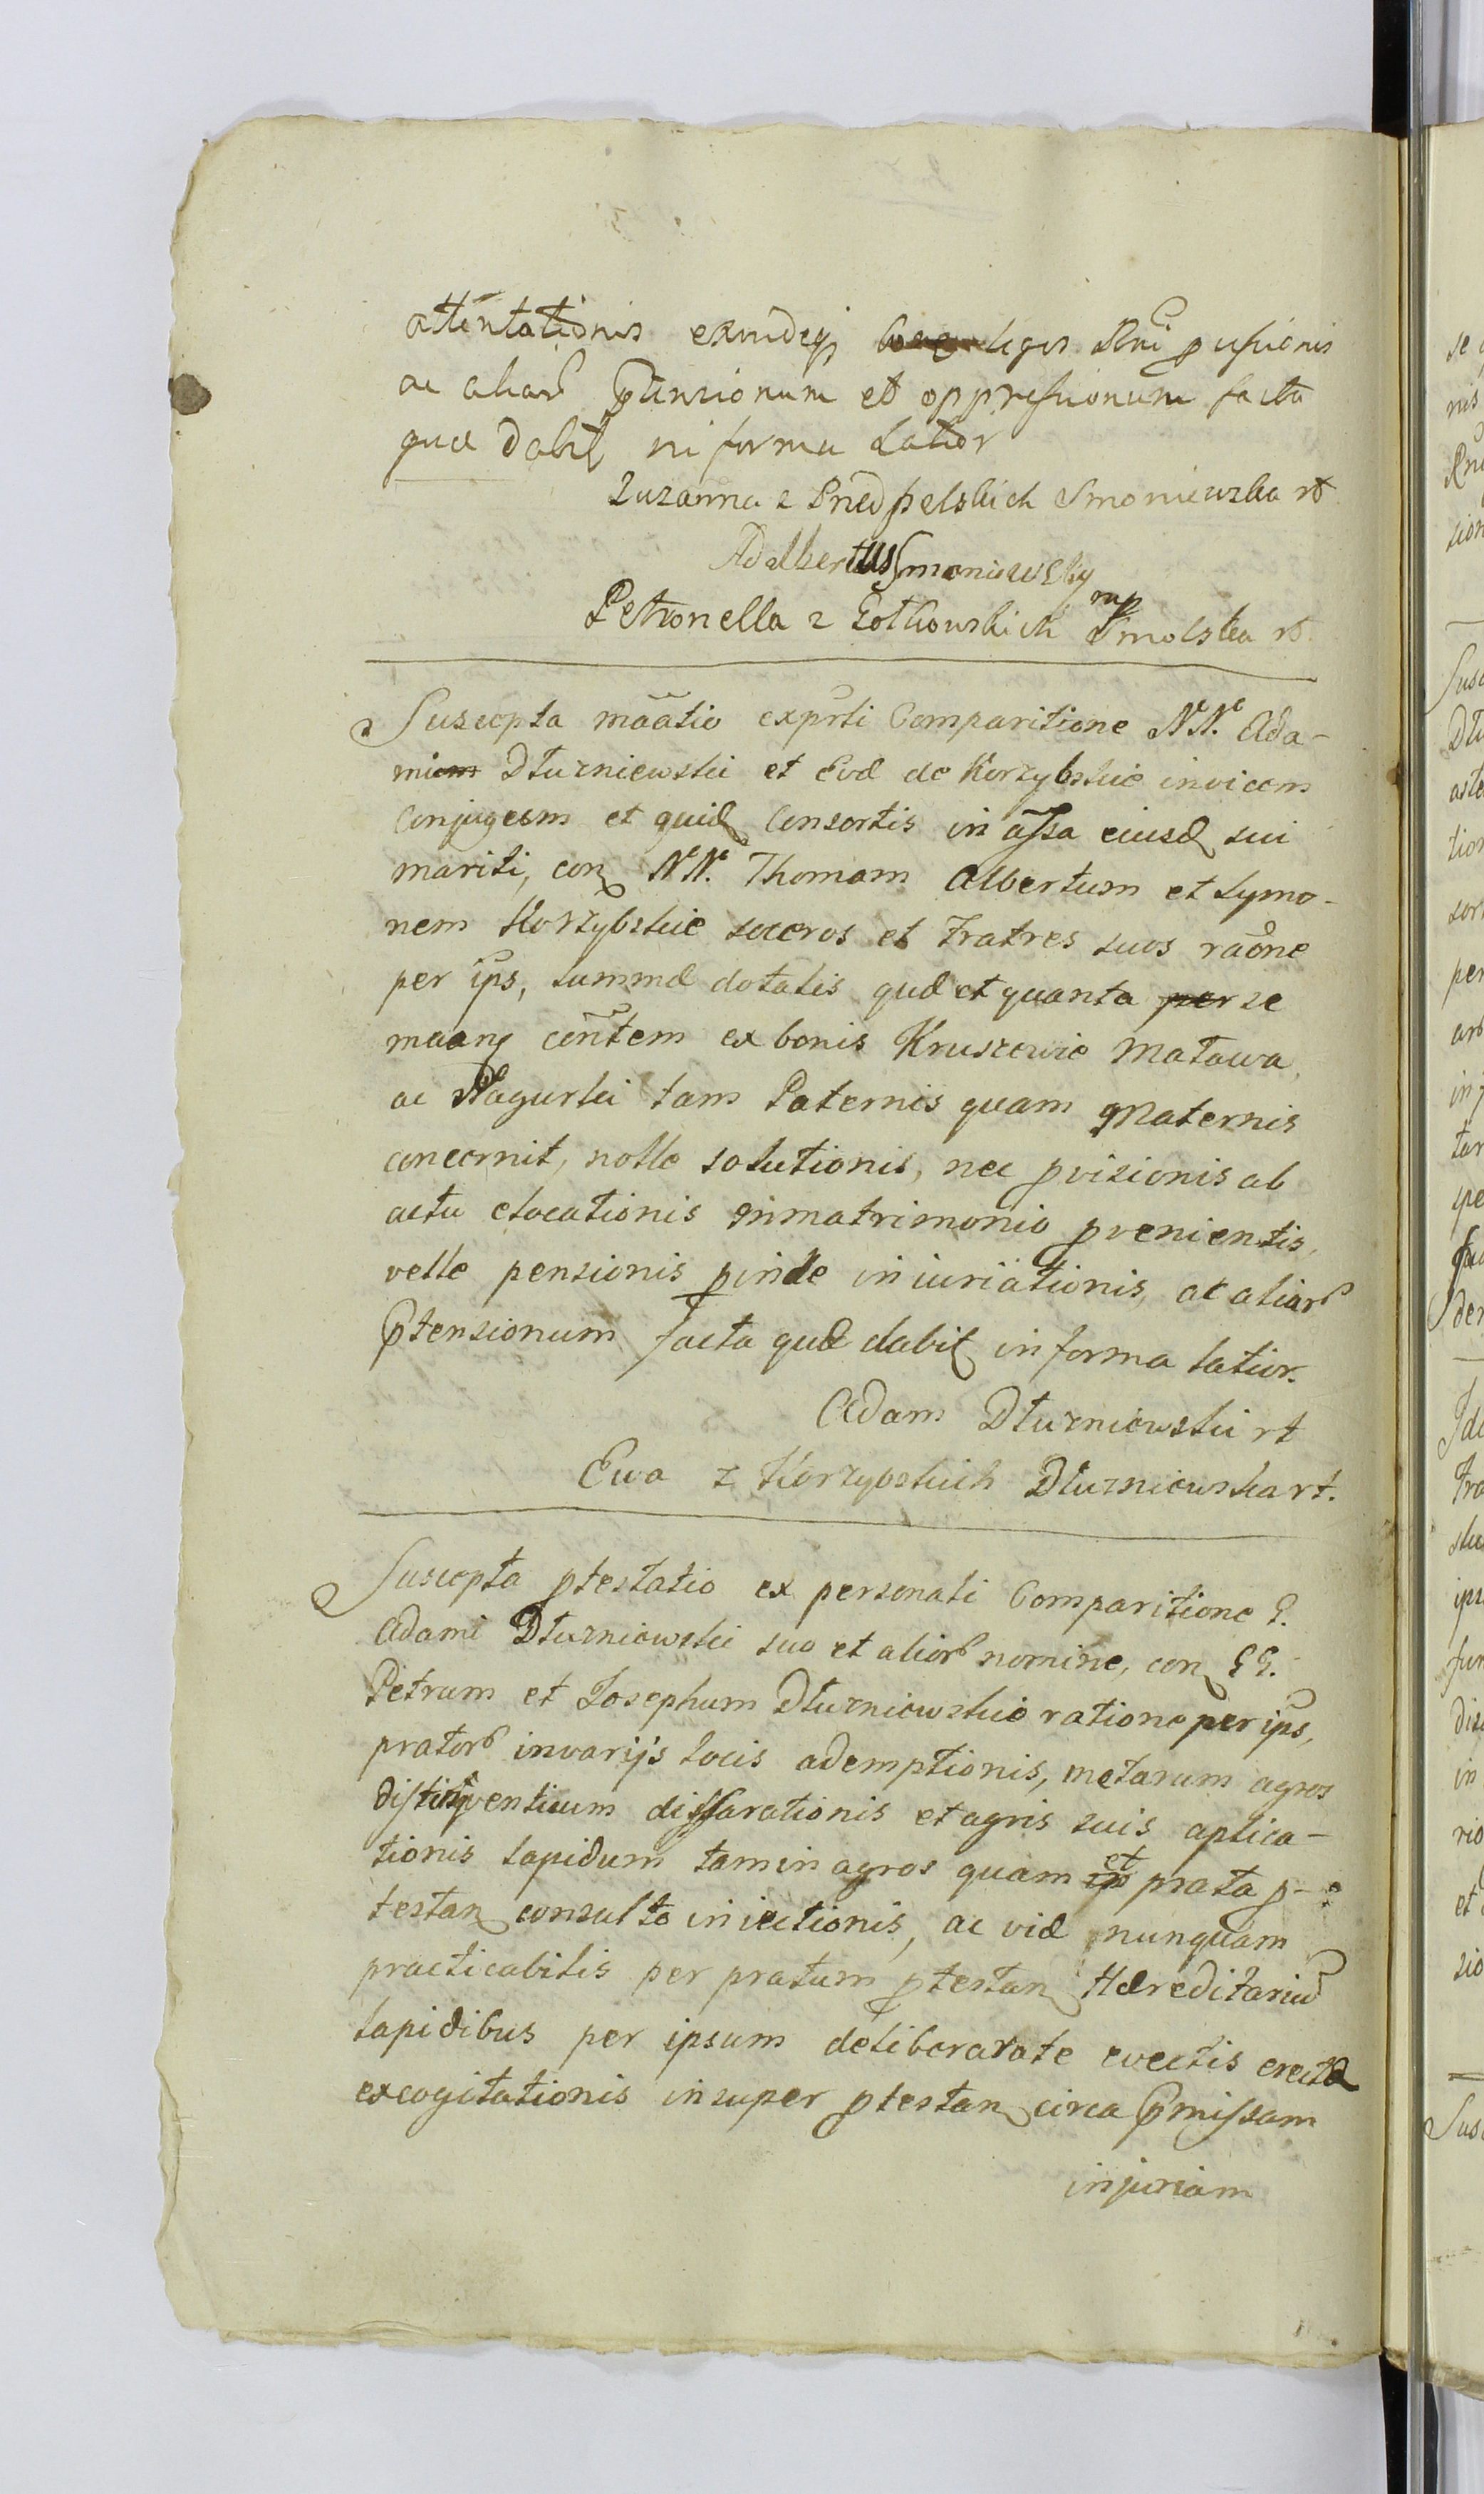 attentationis exindeqȝ legis Rni pussionis
ac aliarʒ prtensionum et oppressionum facta
quæ dabit in forma latior
Zuzanna z Smoniewska rt
Adalbertus Smoniewsky
mp
Petronella z Gotkowskich Smolska rt
Suscepta māatio exprsti Comparitione NN. Ada-
mi Dłuzniewski et Evæ de Korzybskie invicem
Conjugum et quid Consortis in assa eiusd sui
mariti, con NN. Thomam Albertum et Symo-
nem Korzybskie soceros et Fratres suos raōne
per ips, summæ dotalis quæ et quanta per se
maang cōntem ex bonis Kruszewie Matawa
ac Nagurki tam Paternis quam Maternis
concernit, nolle solutionis, nec pvisionis ab
actu elocationis in matrimonio pvenientis,
velle pensionis pinde iniuriationis, ac aliarʒ
prtensionum facta quæ dabit in forma latior.
Adam Dłuzniewski rt
Ewa z Korzybskich Dłuzniewska rt.
Suscepta ptestatio ex personali Comparitione G.
Adami Dłuzniewski suo et aliorʒ nomine, con GG.
Petrum et Josephum Dłuzniewskie ratione per ips,
pratorʒ in varijs locis ademptionis, metarum agros
distinquentium dissarationis et agris suis aplica-
tionis lapidum tam in agros quam et prata p-
testan consulto iniectionis, ac viæ nunquam
practicabilis per pratum ptestan Hæreditariu
lapidibus per ipsum deliberarate evectis erectæ
excogitationis insuper ptestan circa prmissam
injuriam